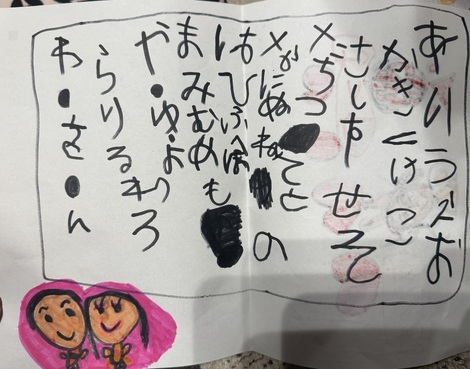 あいうえお
かきくけこ
さしすせそ
たちつてと
なにぬねの
はひふほ
まみむめも
や・ゆ・よ
らりるれろ
わ・を・ん